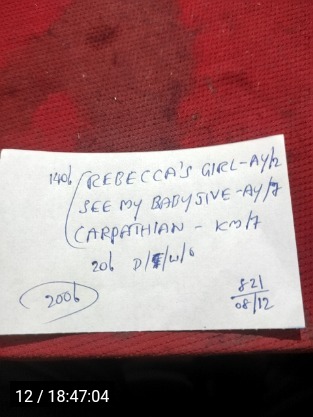 1406 REBECCA'S GIRL - AY/r
SEE MY BABY JIVE - AY/7
CARPATHIAN - KM/7
206 D/F/W/O
2006
821
08/12
12 / 18:47:04